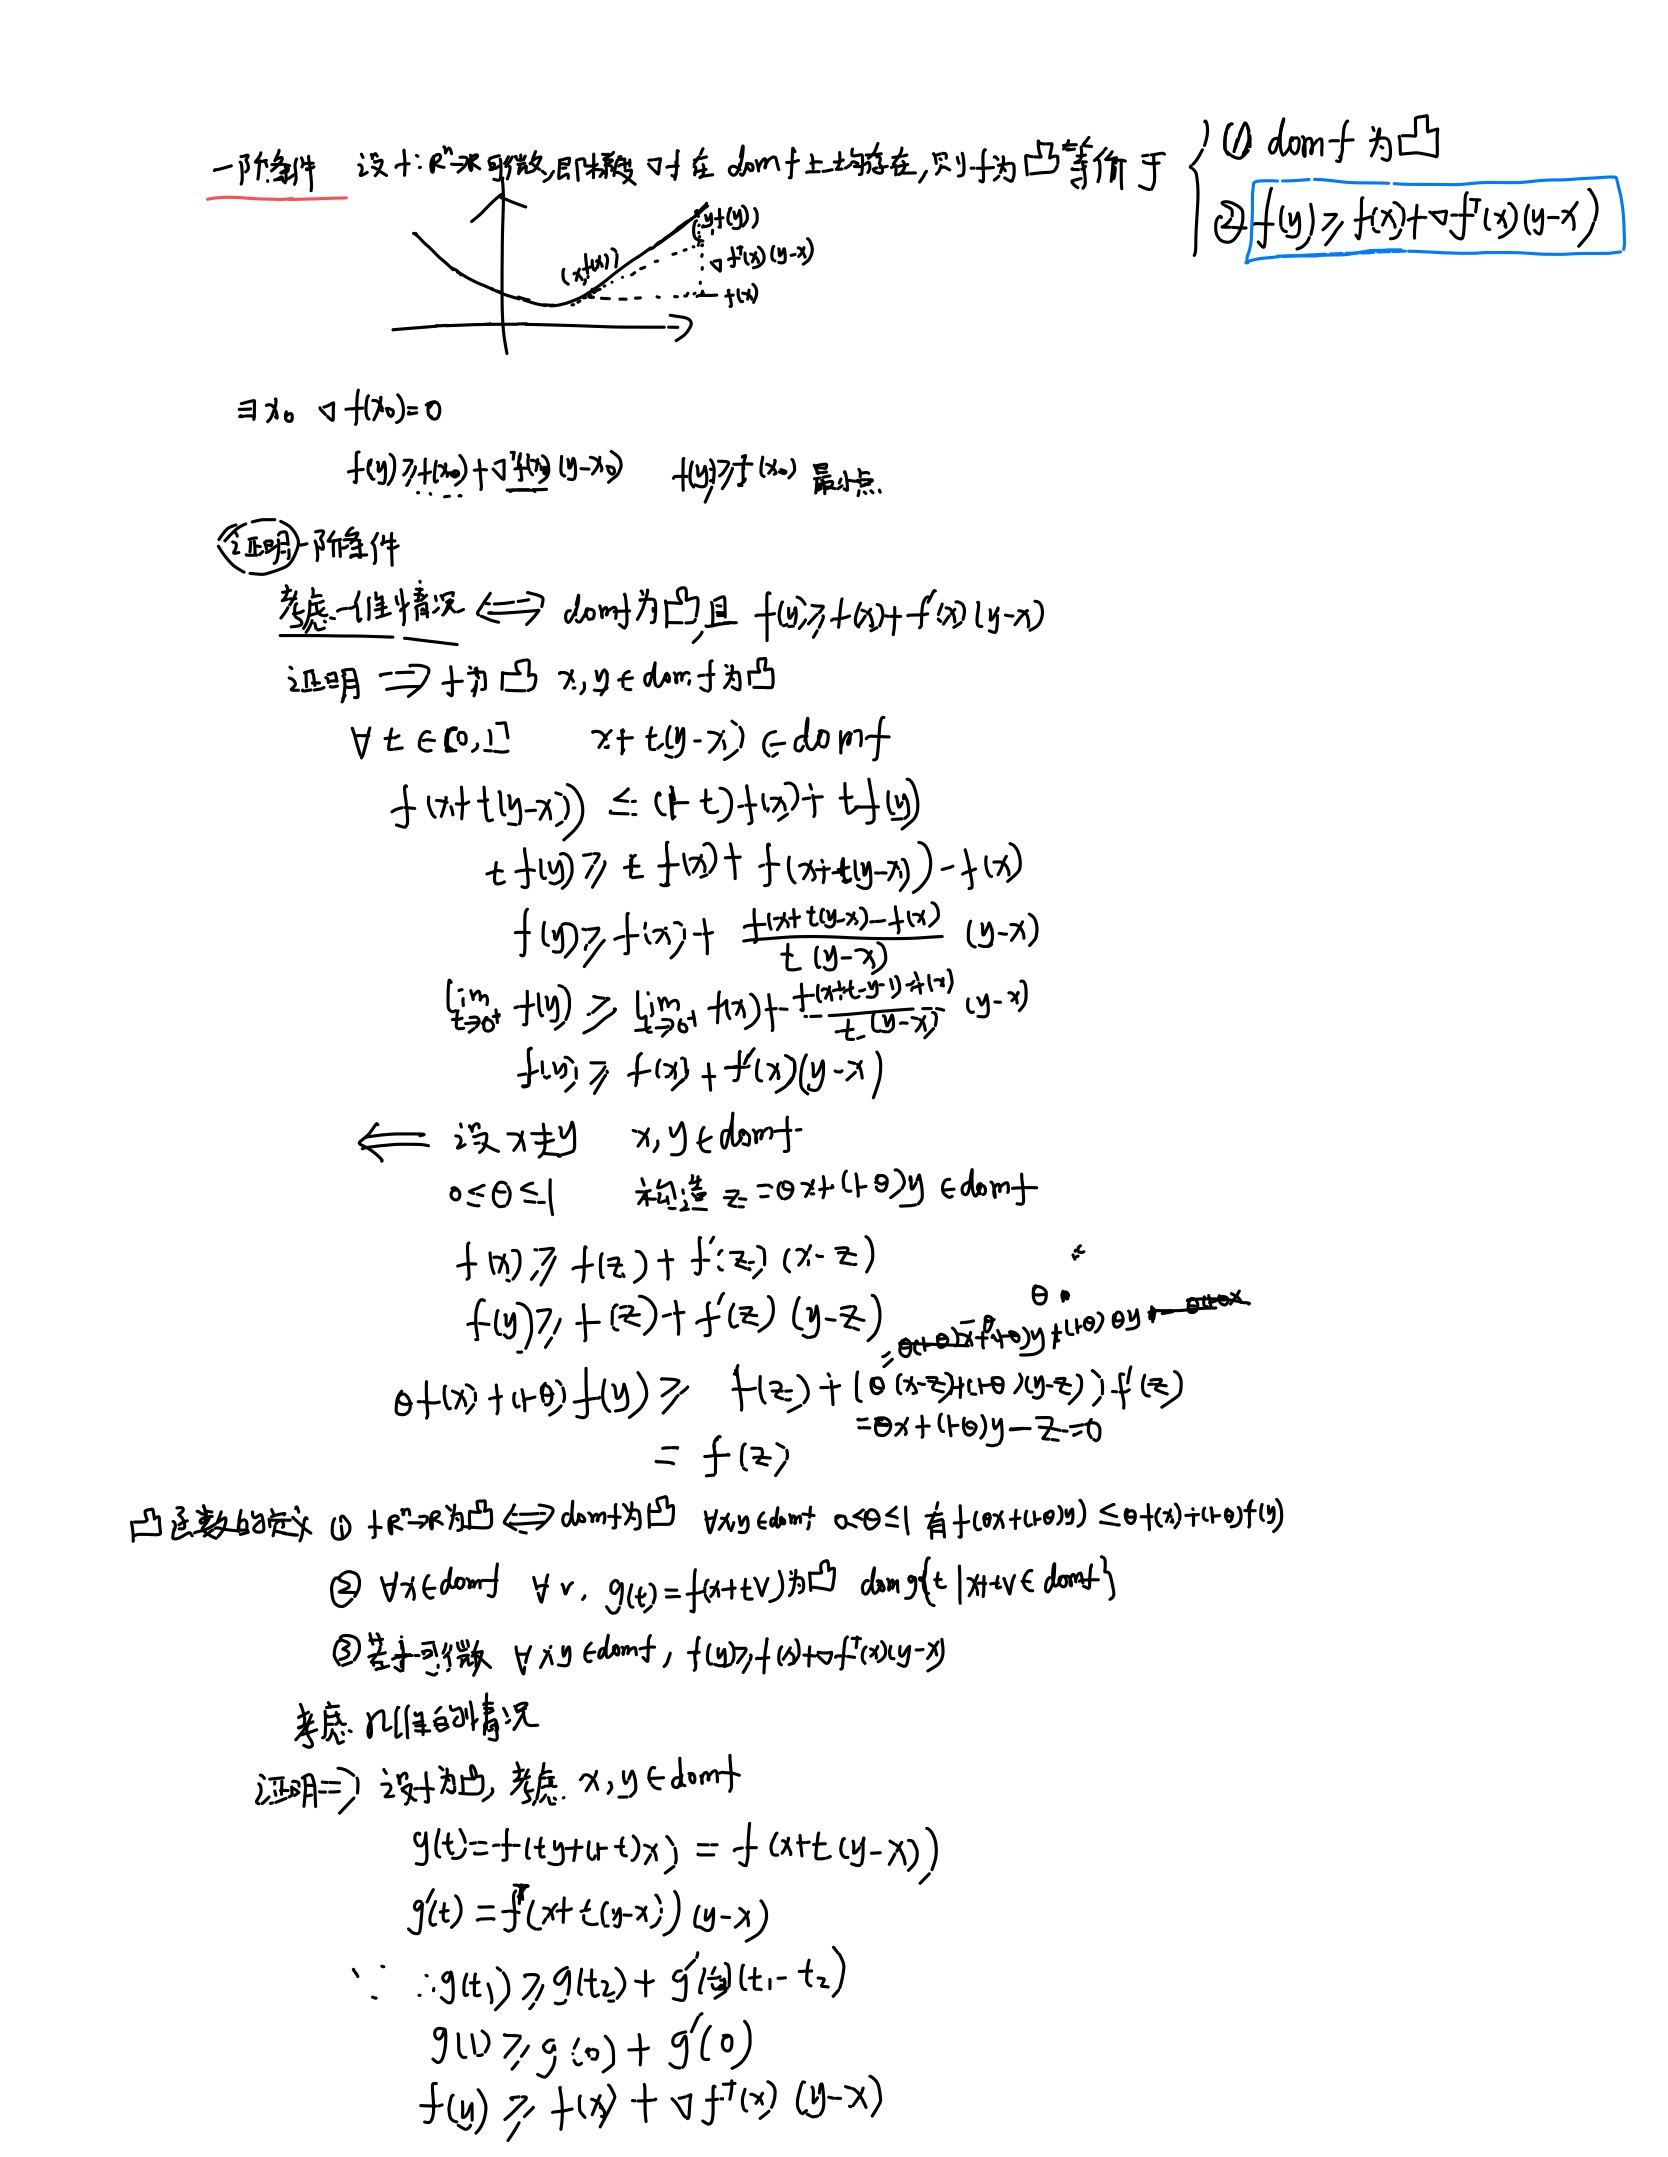 一阶条件 设f:Rⁿ→R可微,即梯度∇f在 dom f上均存在,则f为凸等价于 { ① dom f 为凸
② f(y)≥f(x)+∇fᵀ(x)(y-x)
(y f(y))
(x f(x))
∇fᵀ(x)(y-x)
f(x)
∃x₀ ∇f(x₀)=0
f(y)≥f(x₀)+∇ᵀf(x₀)(y-x₀) f(y)≥f(x₀) 最小点.
证明 一阶条件
考虑一维情况 ⟺ domf为凸,且 f(y)≥f(x)+f'(x)(y-x)
证明 ⇒ f为凸 x,y∈dom f为凸
∀t∈[0,1] x+t(y-x)∈domf
f(x+t(y-x)) ≤ (1-t)f(x)+tf(y)
tf(y)≥tf(x)+f(x+t(y-x))-f(x)
f(y)≥f(x)+ f(x+t(y-x)-f(x) / t(y-x) (y-x)
lim t→0⁺ f(y) ≥ lim t→0⁺ f(x)+ / t(y-x) (y-x)
f(y)≥f(x)+f'(x)(y-x)
⇐ 设x≠y x,y∈domf
0≤θ≤1 构造 z=θx+(1-θ)y∈domf
f(x)≥f(z)+f'(z)(x-z)
θ
f(y)≥f(z)+f'(z)(y-z)
θf(x)+(1-θ)f(y)≥ f(z)+(θ(x-z)+(1-θ)(y-z))f'(z)
=θx+(1-θ)y-z=0
= f(z)
凸函数的定义 ① f Rⁿ→R为凸⟺domf为凸 ∀x,y∈domf 0≤θ≤1 有f(θx+(1-θ)y)≤θf(x)+(1-θ)f(y)
② ∀x∈domf ∀v, g(t)=f(x+tv)为凸 dom g{t|x+tv∈domf}
③ 若f可微 ∀x y∈domf, f(y)≥f(x)+∇fᵀ(x)(y-x)
考虑 n维的情况
证明⇒ 设f为凸,考虑 x,y∈domf
g(t)=f(ty+(1-t)x)=f(x+t(y-x))
g'(t)=fᵀ(x+t(y-x))(y-x)
∵ ∴g(t₁)≥g(t₂)+g'(t₂)(t₁-t₂)
g(1)≥g(0)+g'(0)
f(y)≥f(x)+∇fᵀ(x)(y-x)